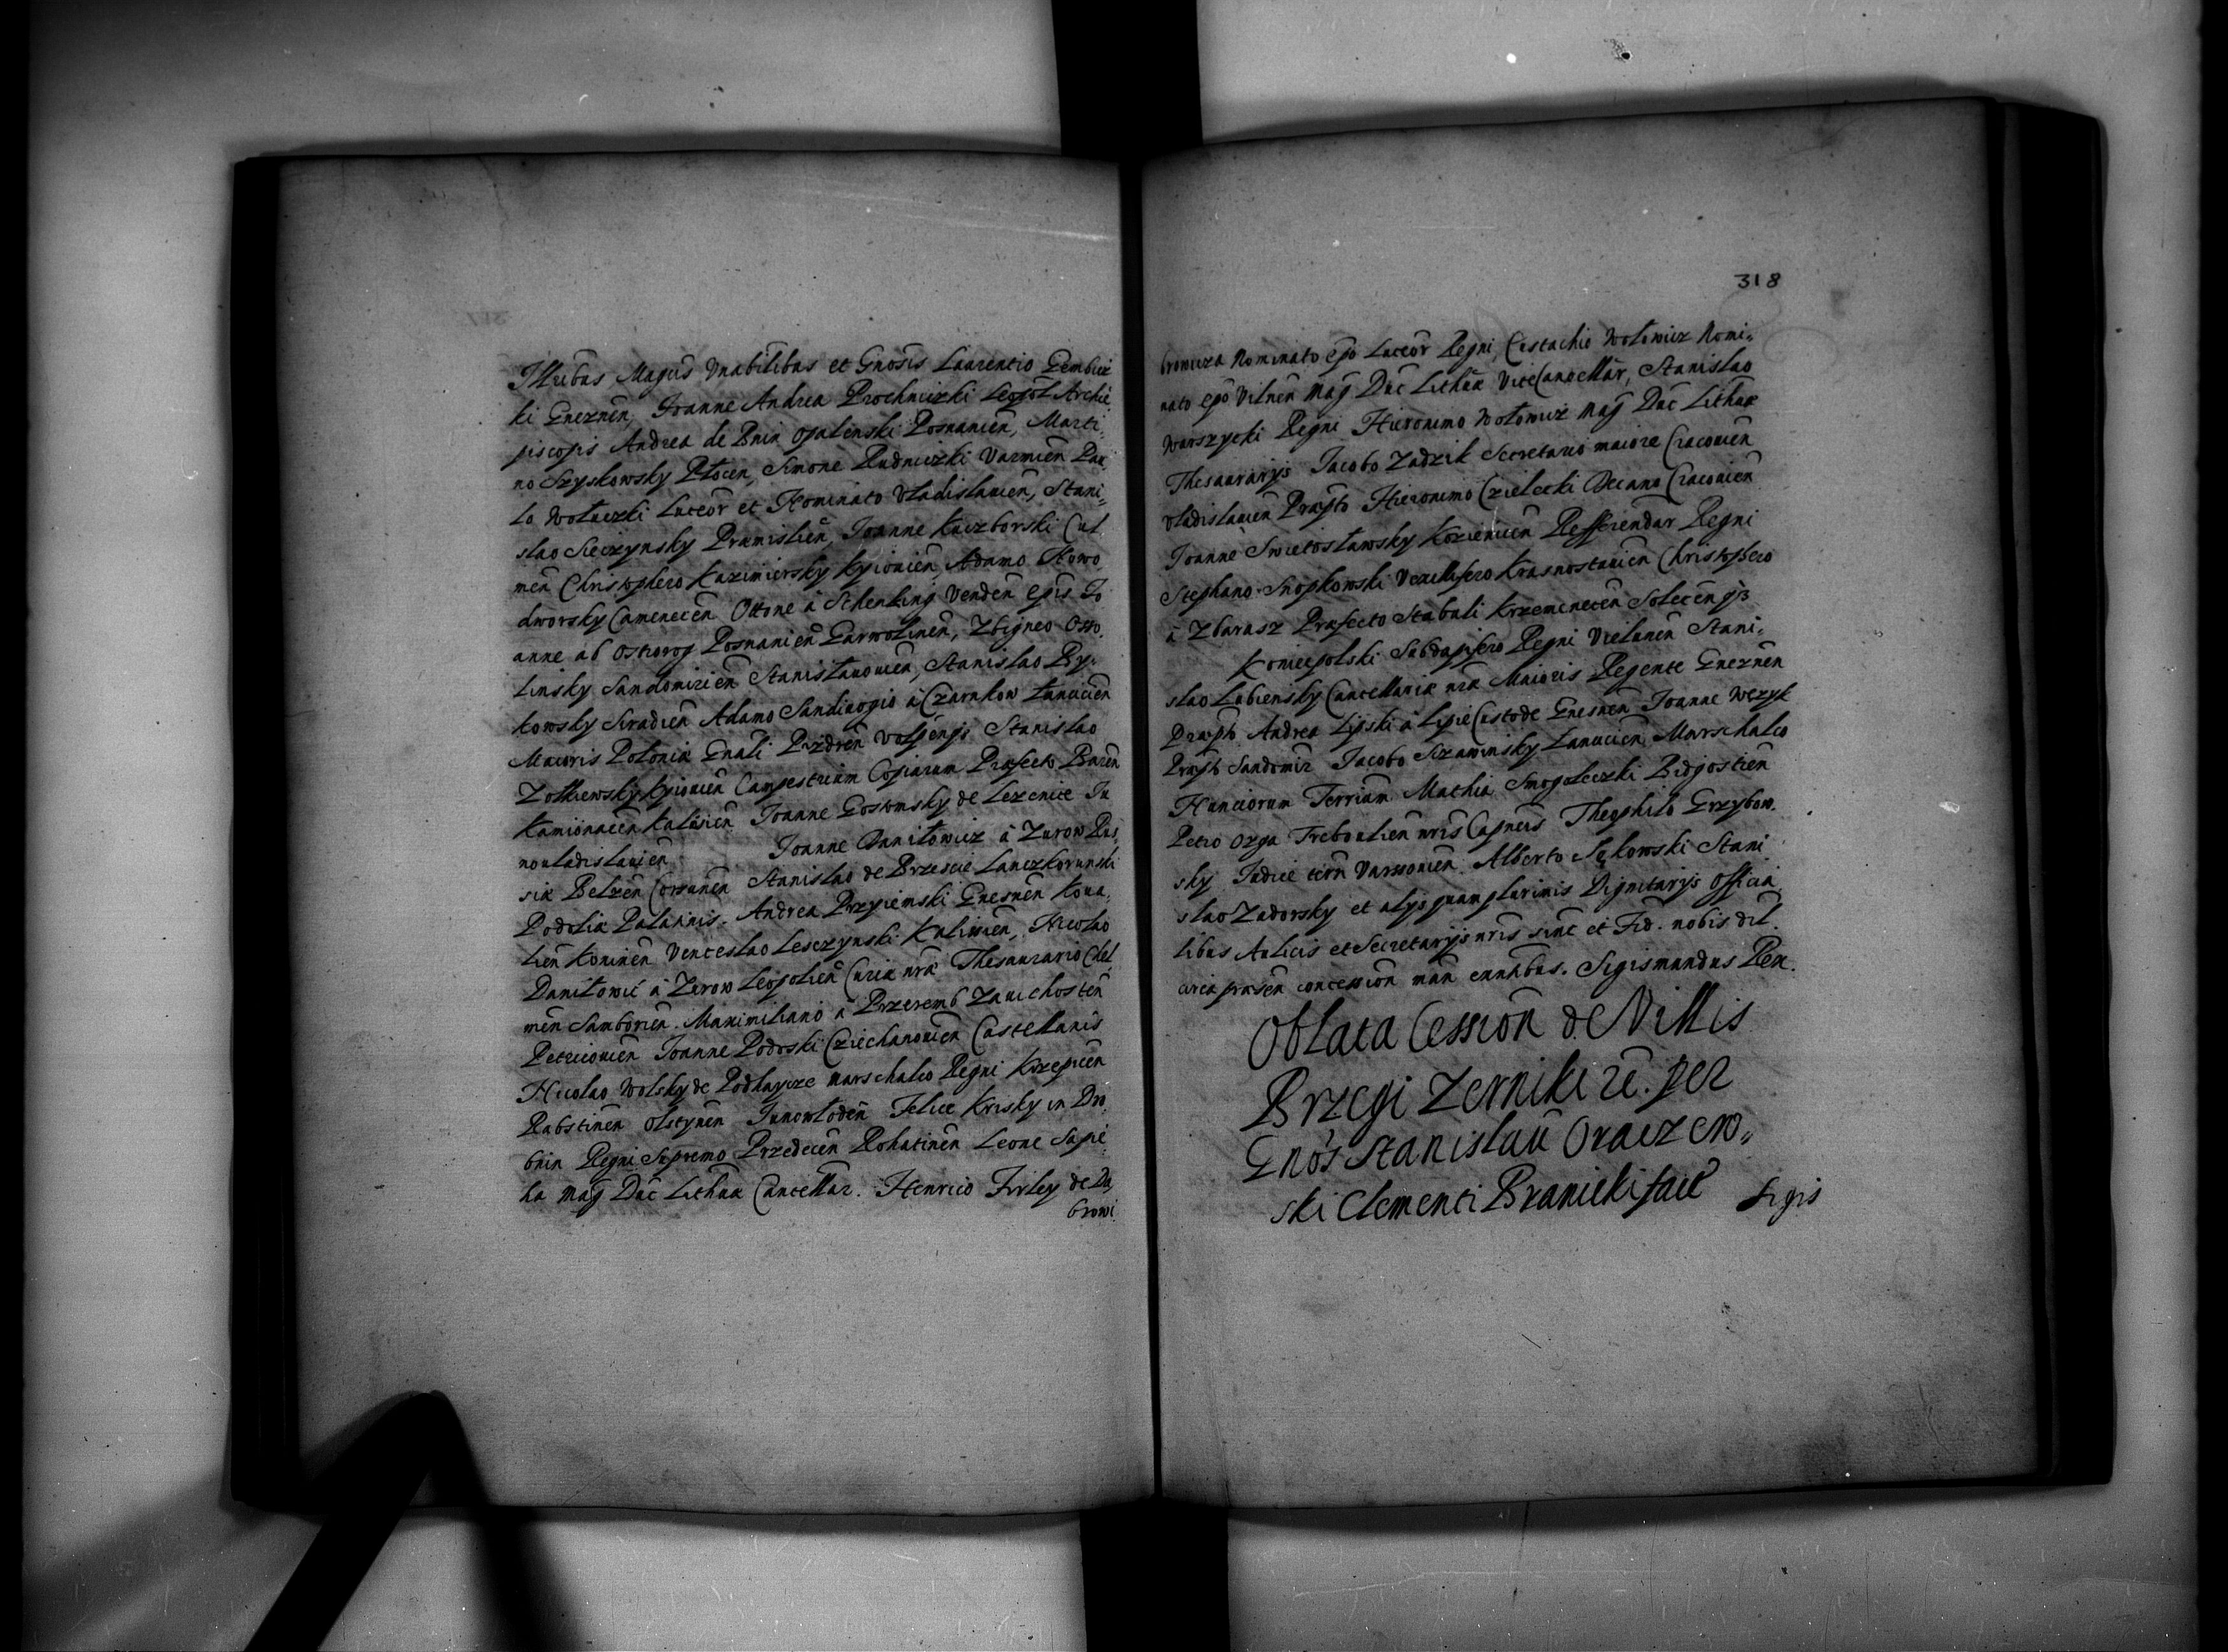 Jllribus Magcis Vnabilibus et Gnosis Laurentio Gembicz
ki Gneznen, Joanne Andrea Prochniczki Leopol Archie
piscopis Andrea de Bnin Opalenski Posnanien, Marti-
no Szyskowsky Plocen, Simone Rudniczki Varmien Pau
lo Wołuczki Luceor et Nominato Vladislauien, Stani-
slao Sieczynsky Pramislien, Joanne Kuczborski Cul
men Christophero Kazimiersky Kyiouien, Adamo Nowo
dworsky Camenecen Ottone à Schenking Venden Epis Jo
anne ab Ostrorog Posnanien Garwolinen, Zbigneo Osso.
linsky Sandomirien Stanisławouien, Stanislao By-
kowsky Siradien Adamo Sandiuogio à Czarnkow Łancicien
Maioris Polonia Gnali Pizdren Volpensi Stanislao
Zolkiewsky Kyiouien Campestrium Copiarum Prafecto Baren
Kamionacen Kalusien Joanne Gostomsky de Lezenice Ju
nouladislauien Joanne Daniłowicz à Zurow Rus
sia Belzen Corsunen Stanislao de Brzescie Lanczkorunski
Podolia Palatinis. Andrea Przyiemski Gnesnen Koua-
lien Koninen Venceslao Lesczynski Kalissien, Nicolao
Daniłowic à Zurow Leopolien Curia nra Thesaurario Chel
men Samborien. Maximiliano à Przeremb Zauichosten
Petricouien Joanne Podoski Cziechanouien Castellanis
Nicolao Wolsky de Podhaycze Marschalco Regni Krzepicen
Rabstinen Olstynen Junowloden Felice Krisky in Dro
bnin Regni Supremo Przedecen Rohatinen Leone Sapie
ha Mag Duc Lithua Cancellar. Henrico Firley de Da
browi
318
browiza Nominato Epo Luceor Regni, Eustachio Wołowicz Nomi-
nato Epo Vilnen Mag Duc Lithua ViceCancellar, Stanislao
Warszycki Regni Hieronimo Wołowicz Mag Duc Lithua
Thesaurarys Jacobo Zadzik Secretario maiore Cracouien
Vladislauien Prapto Hieronimo Czielecki Decano Cracouien
Joanne Swietosławsky Kozienicen Refferendar Regni
Stephano Snopkowski Vexillifero Krasnostauien Christophero
à Zbarasz Prafecto Stabuli Krzemenecen Solecen
Koniecpolski Subdapifero Regni Vielunen Stani-
slao Lubiensky Cancellaria nra Maioris Regente Gneznen
Prapto Andrea Lipski à Lipie Custode Gnesnen Joanne Wezyk
Prapto Sandomir Jacobo Sczawinsky Lancicien Marschalco
Nunciorum Terriam Mathia Smogoleczki Bidgostien
Petro Ozga Treboulien nris Capneis Theophilo Grzybow.
sky Judice terrn Varssouien. Alberto Sękowski Stani
slao Zadorsky et alys quam plurimis Dignitarys Officia
libus Aulicis et Secretarys nris sinc et Fid. nobis dil.
circa prasen concession man ennabus. Sigismundus Rex.
Oblata Cession de Villis
Brzegi Zerniki rc. per
Gnos Stanislau Oraczew,,
ski Clementi Branicki fact Sigis